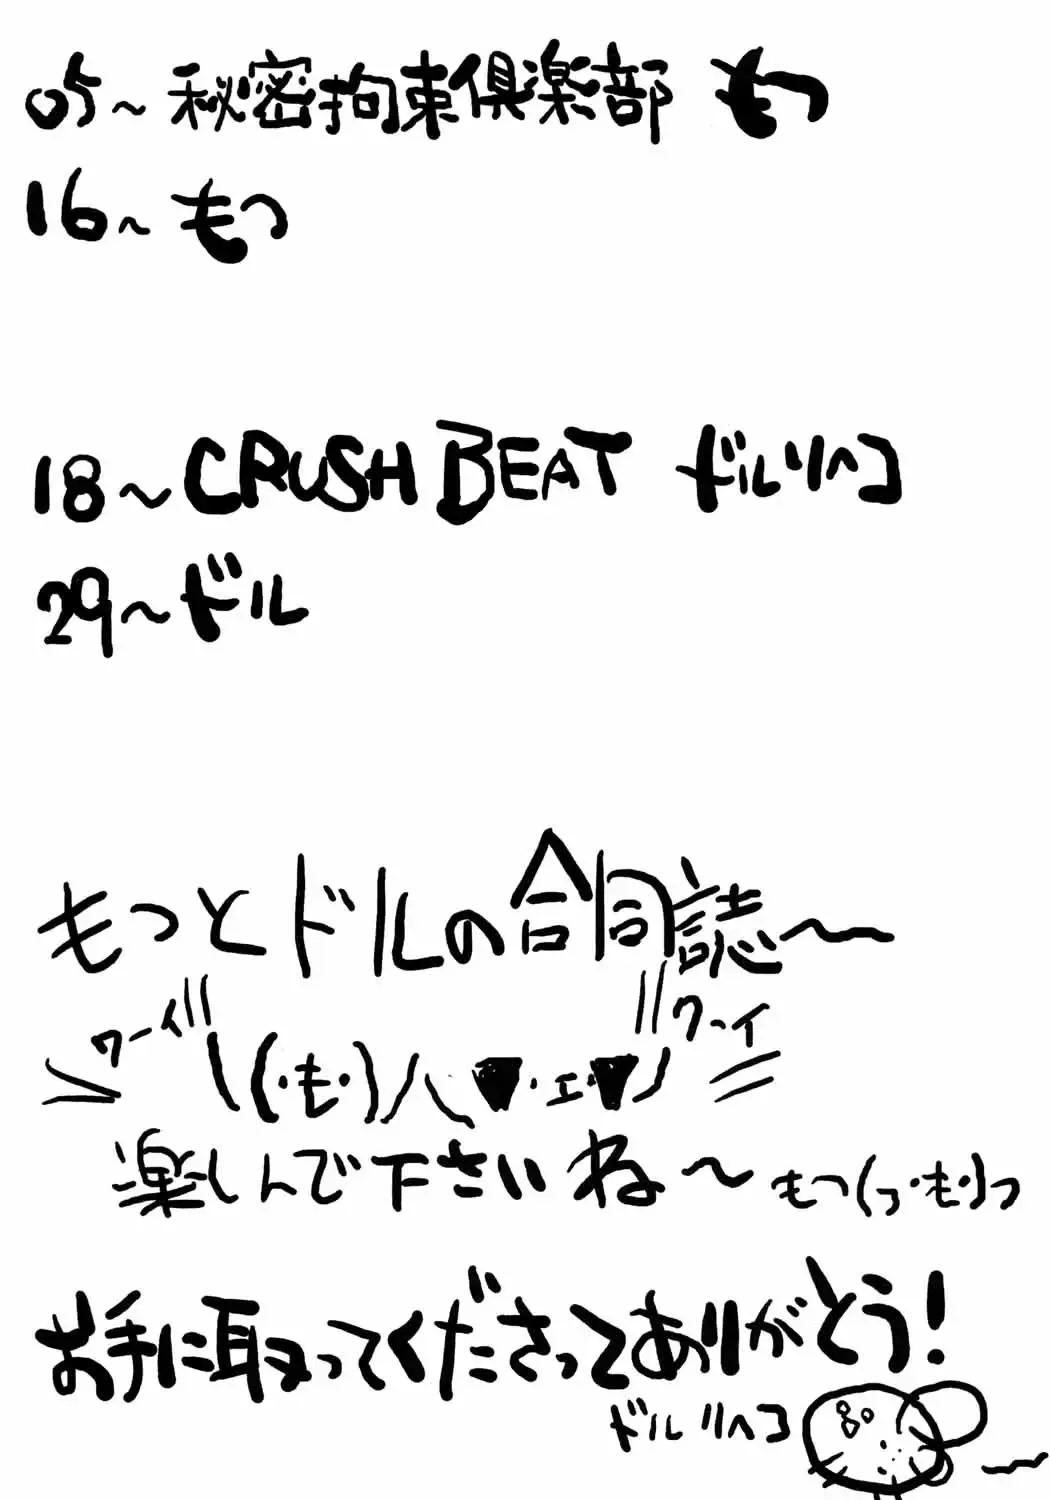 05~秘密拘束倶楽部 もつ
16~もつ
18~CRUSH BEAT ドルリヘコ
29~ドル
もつとドルの合同誌~
ワーイ ワーイ
\(・も・)人(▼・ェ・▼)ノ
楽しんで下さいね~ もつ(っ・も・)っ
お手に取ってくださってありがとう!
ドルリヘコ